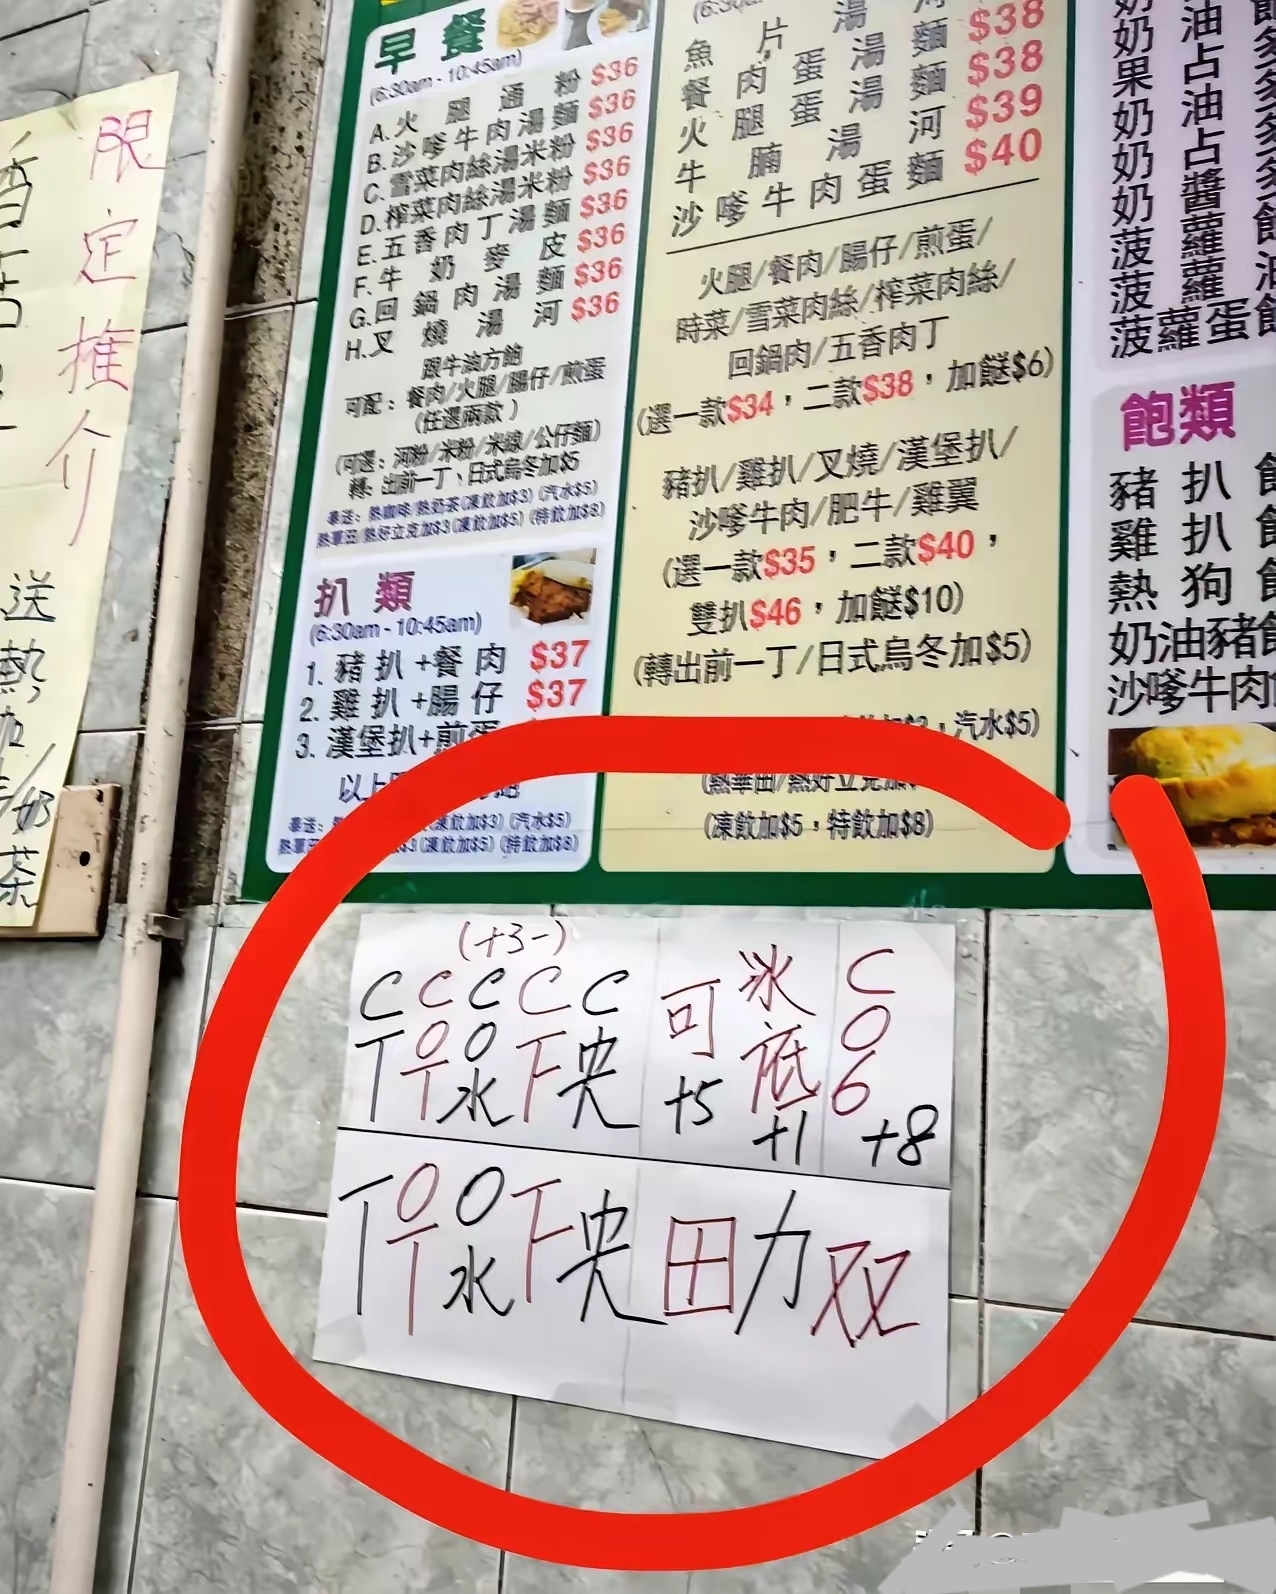 限定推介
送熱
奶茶
早餐
(6:30am - 10:45am)
A.火腿通粉 $36
B.沙嗲牛肉湯麵 $36
C.雪菜肉絲湯米粉 $36
D.榨菜肉絲湯米粉 $36
E.五香肉丁湯麵 $36
F.牛奶麥皮 $36
G.回鍋肉湯麵 $36
H.叉燒湯河 $36
跟牛油方飽
可配：餐肉/火腿/腸仔/煎蛋
(任選兩款)
(可選：河粉/米粉/米線/公仔麵)
轉：出前一丁、日式烏冬加$5
奉送：熱咖啡/熱奶茶(凍飲加$3) (汽水$5)
熱華田/熱好立克加$3(凍飲加$5) (特飲加$8)
扒類
(6:30am - 10:45am)
1. 豬扒+餐肉 $37
2. 雞扒+腸仔 $37
3. 漢堡扒+煎蛋
以上
奉送：
凍飲加$3) (汽水$5)
$3(凍飲加$5) (特飲加$8)
魚片湯河 $38
餐肉蛋湯麵 $38
火腿蛋湯麵
牛腩湯河 $39
沙嗲牛肉蛋麵 $40
火腿/餐肉/腸仔/煎蛋/
時菜/雪菜肉絲/榨菜肉絲/
回鍋肉/五香肉丁
(選一款$34，二款$38，加餸$6)
豬扒/雞扒/叉燒/漢堡扒/
沙嗲牛肉/肥牛/雞翼
(選一款$35，二款$40，
雙扒$46，加餸$10)
(轉出前一丁/日式烏冬加$5)
加$3，汽水$5)
(熱華田/熱好立克加$
(凍飲加$5，特飲加$8)
奶油
奶占
果油
奶占
奶醬
菠蘿
菠蘿油
菠蘿蛋
飽類
豬扒
雞扒
熱狗
奶油豬
沙嗲牛肉
(+3-)
C C C C C
T OT O水 F 央
可 +5
冰底 +1
C O 6 +8
T OT O水 F 央 田 力 双